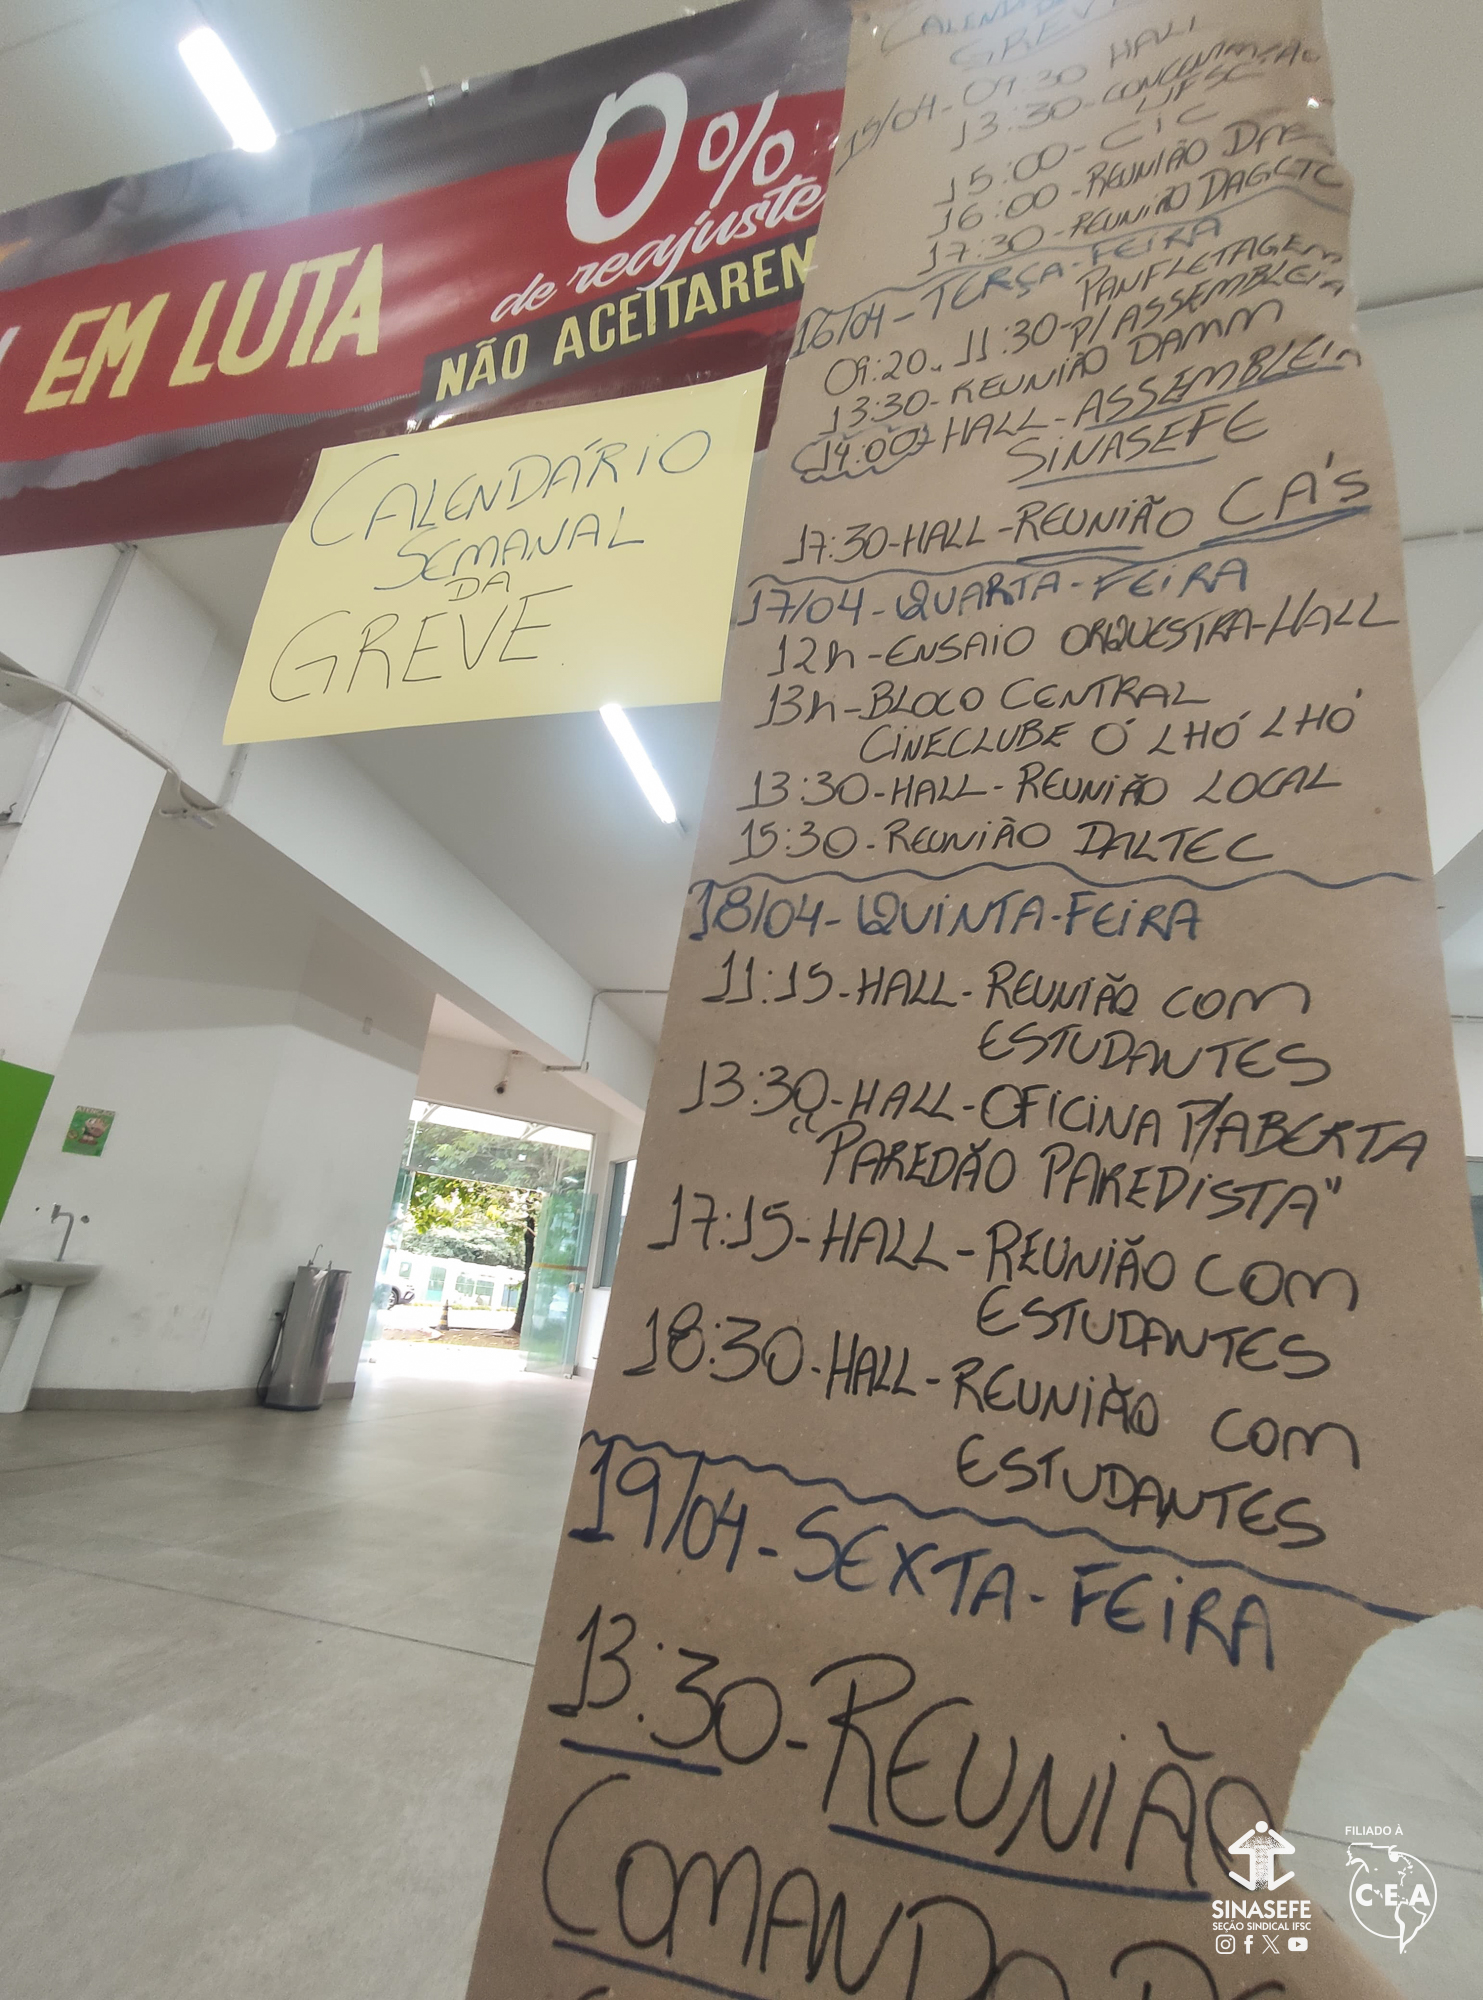 EM LUTA
0%
de reajuste
NÃO ACEITAREM
CALENDÁRIO
SEMANAL
DA
GREVE
GREVE
15/04-09:30 HALL
13:30-CONCENTRAÇÃO
UFSC
15:00-CIC
16:00-REUNIÃO
17:30-REUNIÃO DAGCTC
16/04-TERÇA-FEIRA
09:20.. 11:30-PANFLETAGEM
P/ASSEMBLEIA
13:30-REUNIÃO DAMM
14:00-HALL-ASSEMBLEIA
SINASEFE
17:30-HALL-REUNIÃO CA'S
17/04-QUARTA-FEIRA
12h-ENSAIO ORQUESTRA-HALL
13h-BLOCO CENTRAL
CINECLUBE Ó LHÓ LHÓ
13:30-HALL-REUNIÃO LOCAL
15:30-REUNIÃO DALTEC
18/04-QUINTA-FEIRA
11:15-HALL-REUNIÃO COM
ESTUDANTES
13:30-HALL-OFICINA P/ABERTA
"PAREDÃO PAREDISTA"
17:15-HALL-REUNIÃO COM
ESTUDANTES
18:30-HALL-REUNIÃO COM
ESTUDANTES
19/04-SEXTA-FEIRA
13:30-REUNIÃO
COMANDO DE
ATENÇÃO
SINASEFE
SEÇÃO SINDICAL IFSC
FILIADO À
C·E·A